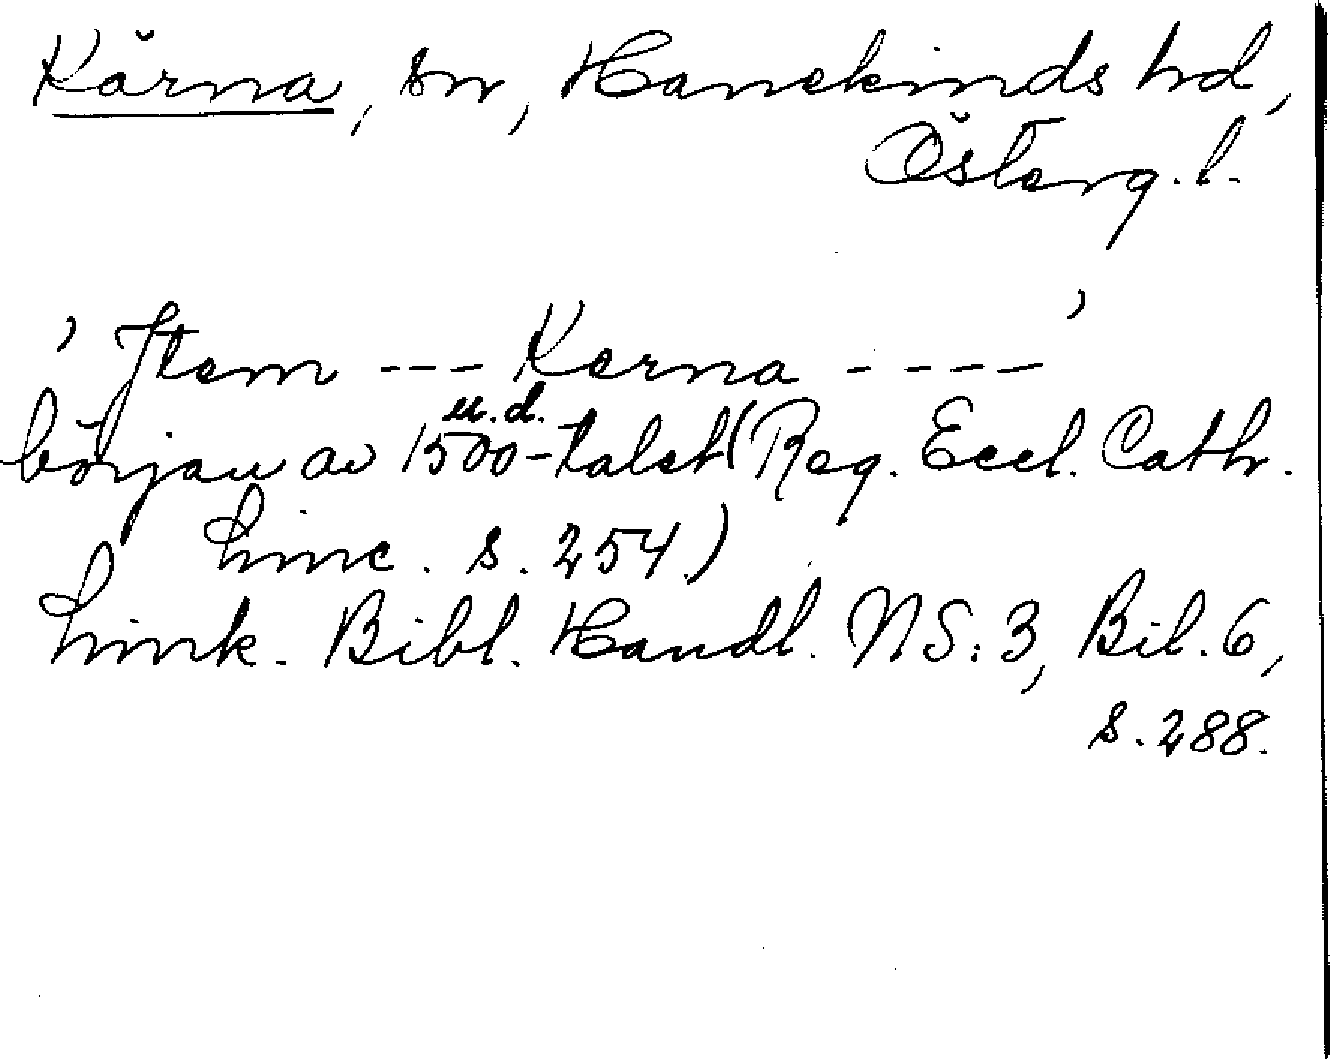 Kärna, sn, Hanekinds hd,
Österg. l.
' Item --- Kerna ---- '
u.d.
början av 1500-talet (Reg. Eccl. Cath.
Linc. s. 254.)
Link. Bibl. Handl. NS: 3, Bil. 6,
s. 288.